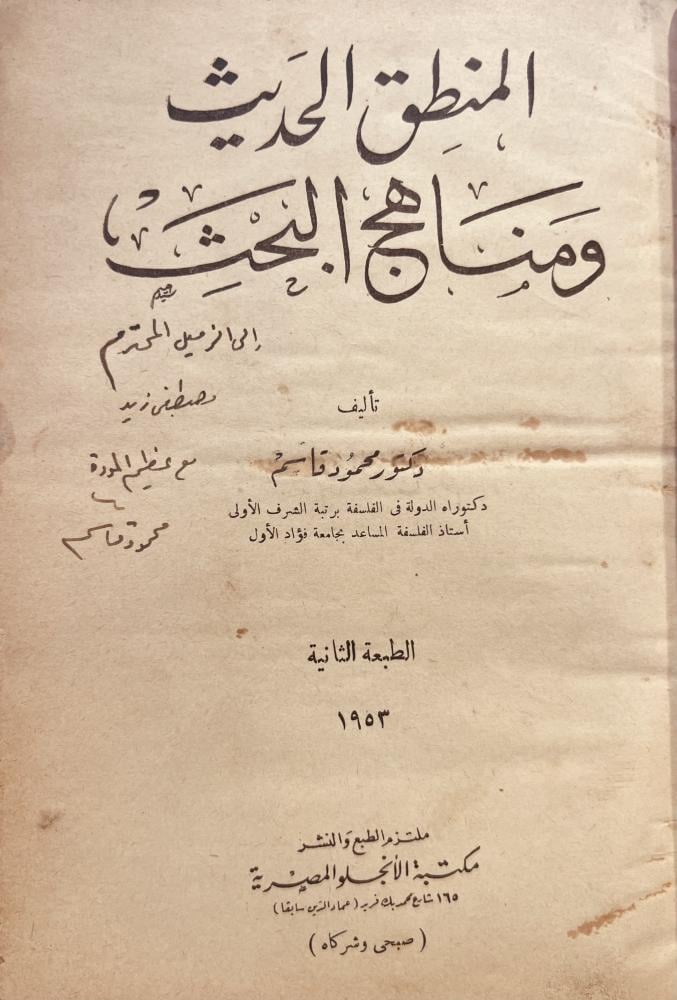 المنطق الحديث
ومناهج البحث
إلى الزميل المحترم
مصطفى زيد
مع عظيم المودة
محمود قاسم
تأليف
دكتور محمود قاسم
دكتوراه الدولة فى الفلسفة برتبة الشرف الأولى
أستاذ الفلسفة المساعد بجامعة فؤاد الأول
الطبعة الثانية
١٩٥٣
ملتزم الطبع والنشر
مكتبة الأنجلو المصرية
١٦٥ شارع محمد بك فريد (عماد الدين سابقا)
(صبحى وشركاه)